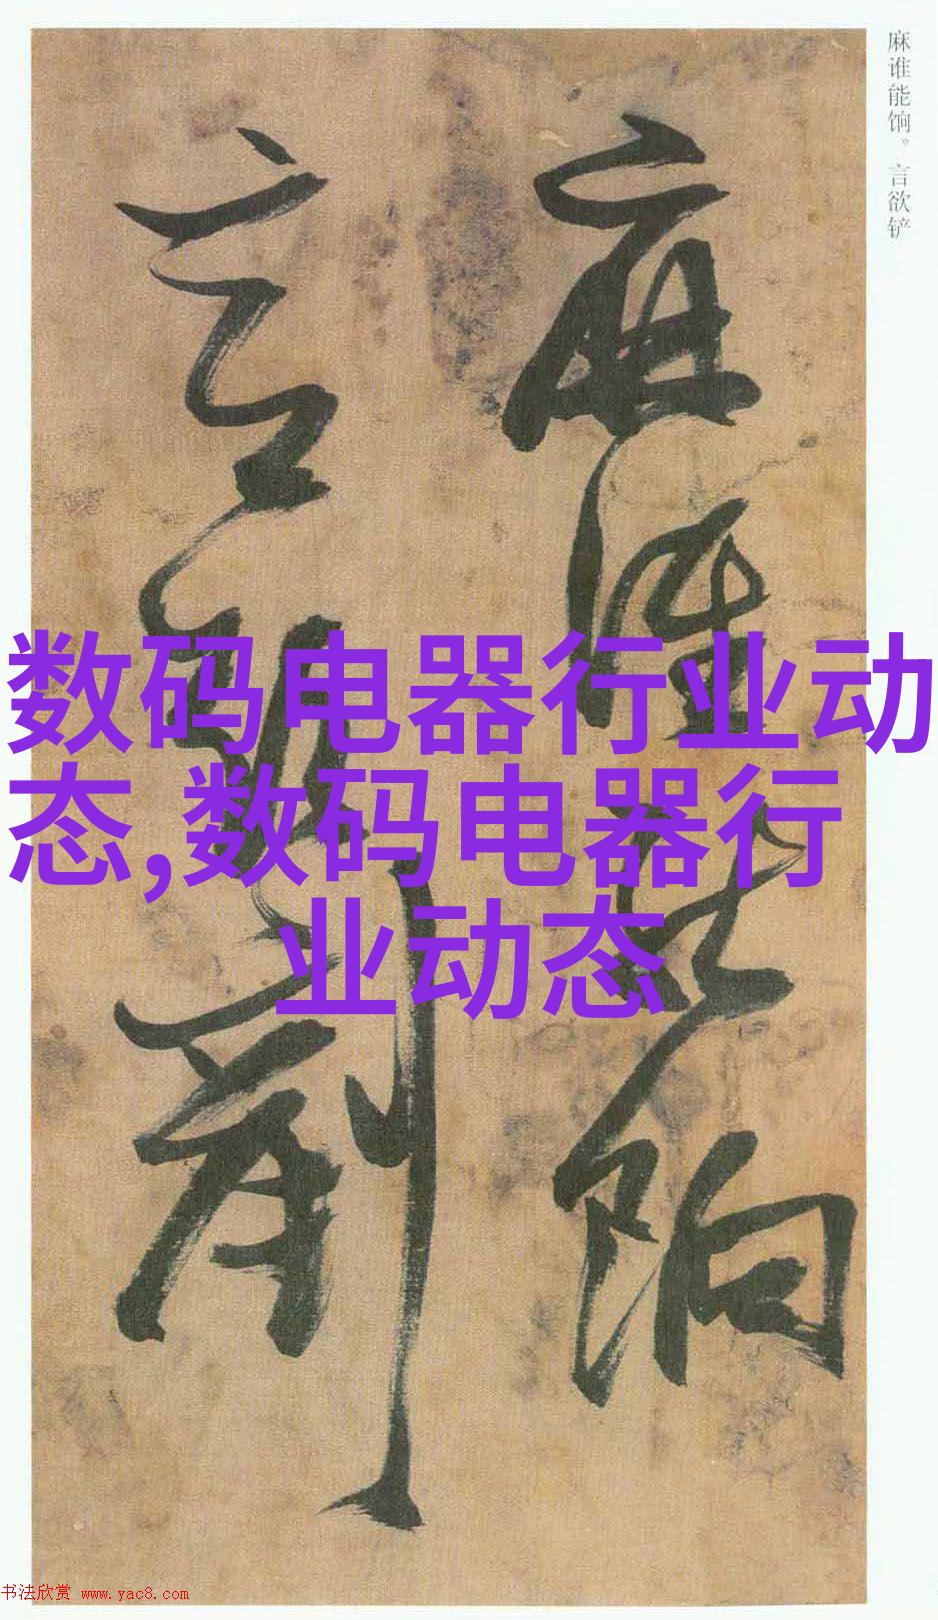 麻谁能饷。言欲铲
麻谁能饷
言欲铲
数码电器行业动
态,数码电器行
业动态
书法欣赏 www.yac8.com